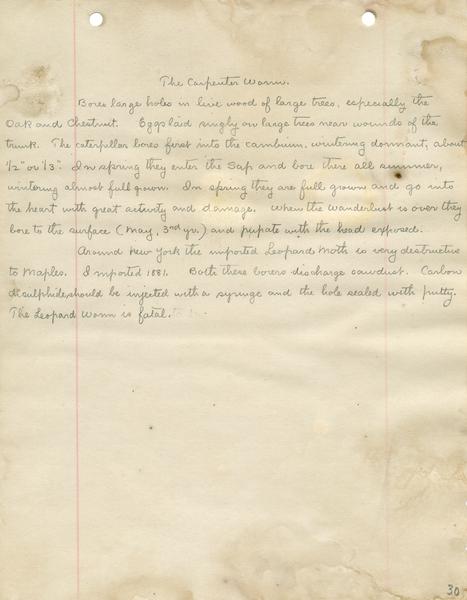 The Carpenter Worm.
Bores large holes in live wood of large trees, especially the
Oak and Chestnut. Eggs laid singly on large trees near wounds of the
trunk. The caterpillar bores first into the cambium, wintering dormant, about
1/2" or 1/3". In spring they enter the Sap and bore there all summer,
wintering almost full grown. In spring they are full grown and go into
the heart with great activity and damage. When the Wanderlust is over they
bore to the surface (May, 3rd yr.) and pupate with the head exposed.
Around New York the imported Leopard Moth is very destructive
to Maples. Imported 1881. Both these borers discharge sawdust. Carbon
disulphide should be injected with a syringe and the hole sealed with putty.
The Leopard Worm is fatal.
30